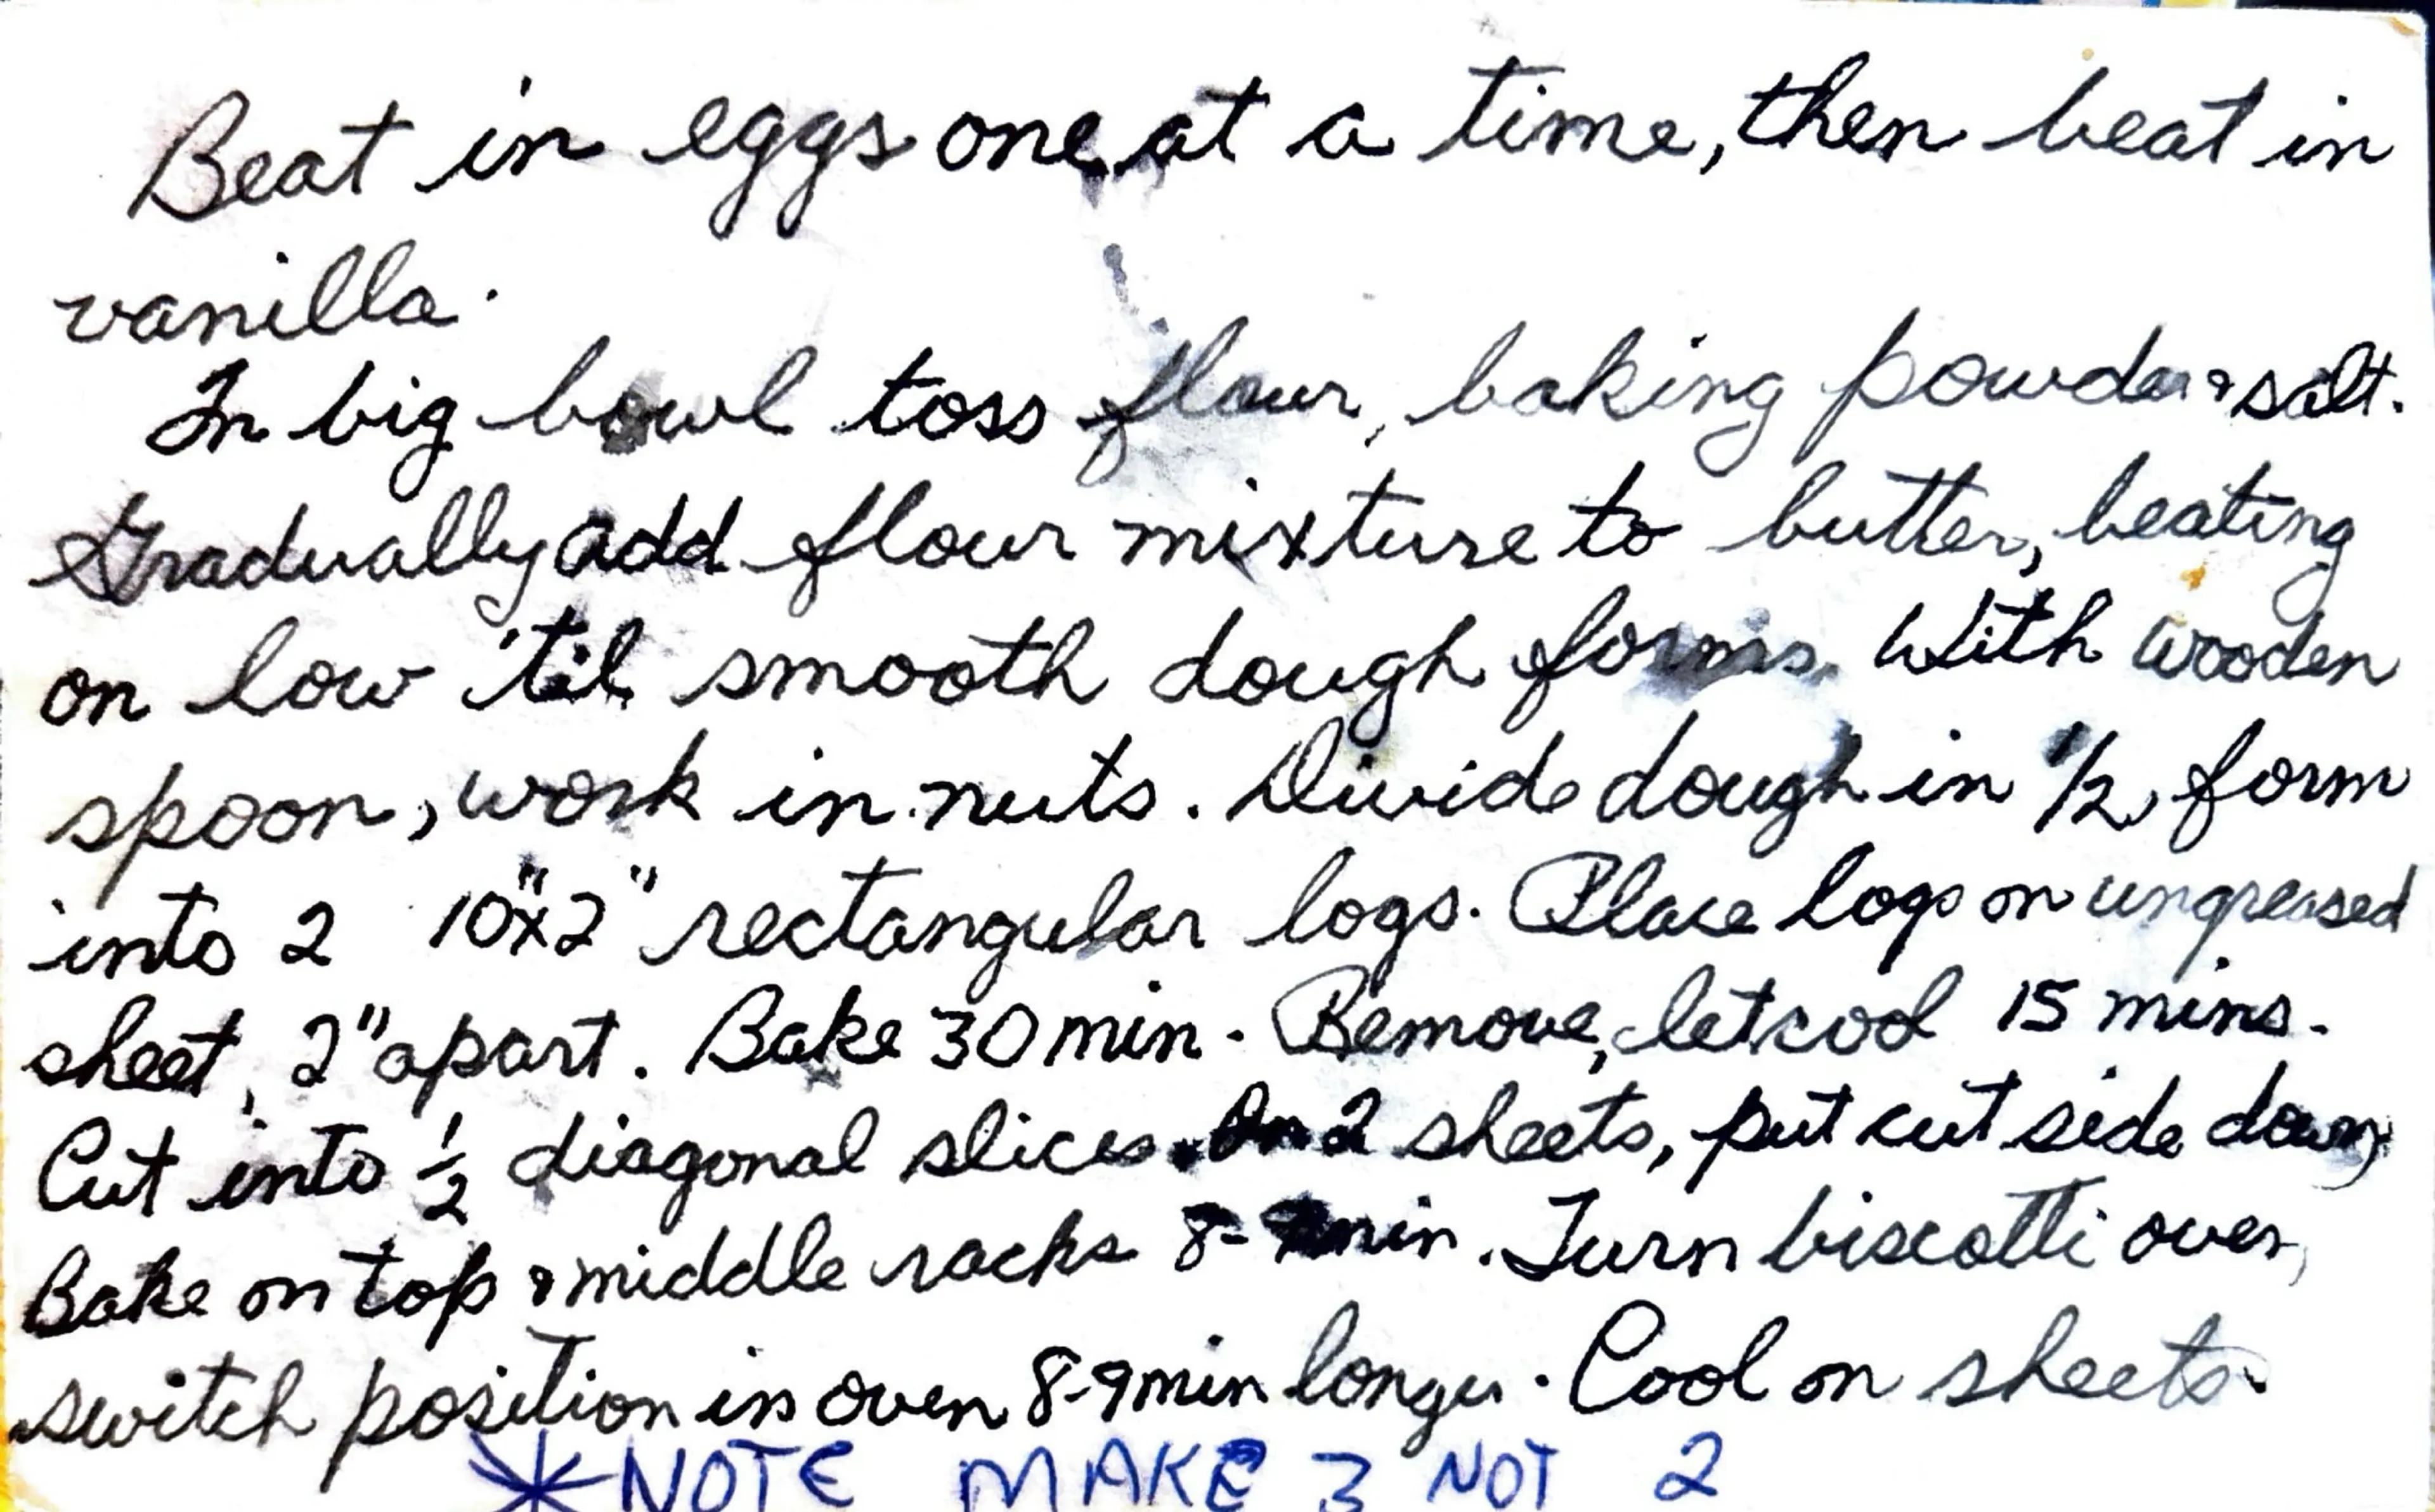 Beat in eggs one at a time, then beat in
vanilla.
In big bowl toss flour, baking powder & salt.
Gradually add flour mixture to butter, beating
on low 'til smooth dough forms. With wooden
spoon, work in nuts. Divide dough in 1/2, form
into 2 10"x2" rectangular logs. Place logs on ungreased
sheet, 2" apart. Bake 30 min. Remove, let cool 15 mins.
Cut into 1/2 diagonal slices. On 2 sheets, put cut side down,
Bake on top & middle racks 8- min. Turn biscotti over,
switch position in oven 8-9 min longer. Cool on sheets.
* NOTE MAKE 3 NOT 2